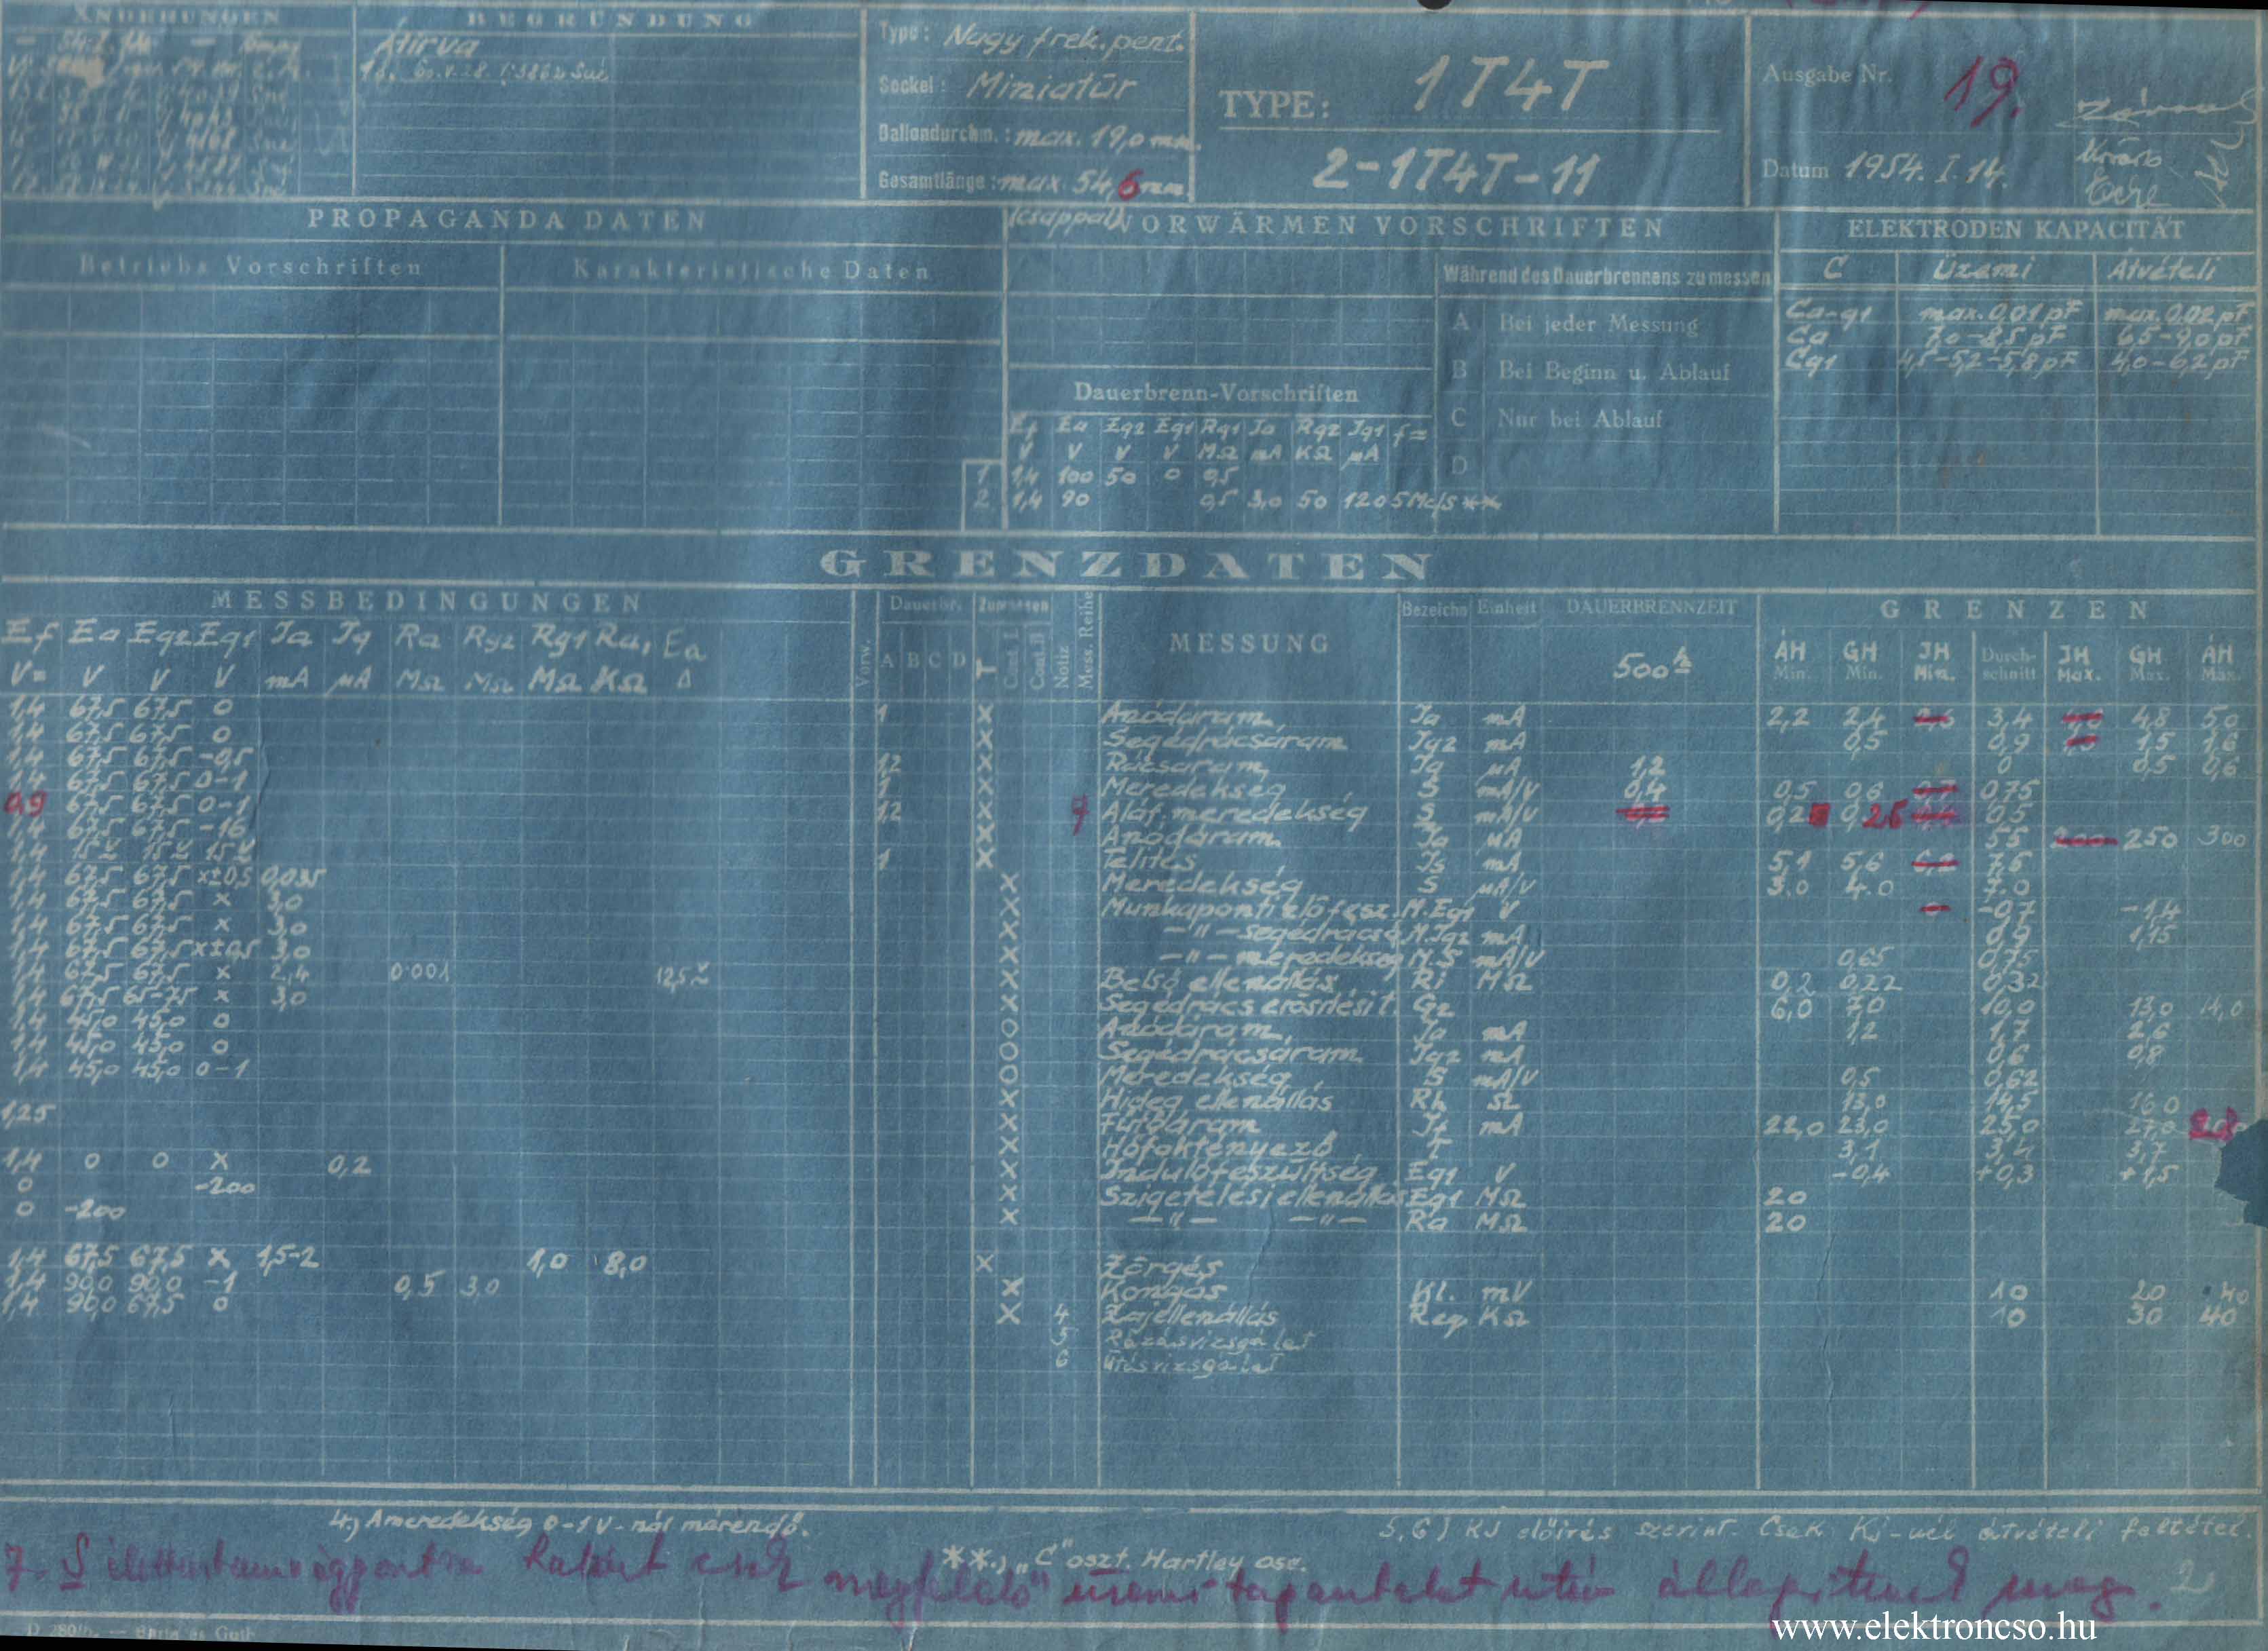 ÄNDERUNGEN
BEGRÜNDUNG
Átírva
Type: Nagy frek. pent.
Sockel: Miniatür
Ballondurchm.: max. 19,0 mm.
Gesamtlänge: max. 54,6 mm.
(csappal)
TYPE: 1T4T
2-1T4T-11
Ausgabe Nr. 19.
Datum 1954. I. 14.
PROPAGANDA DATEN
Betriebs Vorschriften
Karakteristische Daten
VORWÄRMEN VORSCHRIFTEN
Während des Dauerbrennens zu messen
A Bei jeder Messung
B Bei Beginn u. Ablauf
C Nur bei Ablauf
D
Dauerbrenn-Vorschriften
Ef Ea Eg2 Eg1 Rg1 Ja Rg2 Jg1 f=
V V V V MΩ mA KΩ µA
1 1,4 100 50 0 0,5
2 1,4 90 0,5 3,0 50 120 5Mc/s **
ELEKTRODEN KAPACITÄT
C Üzemi Átvételi
Ca-g1 max. 0,01 pF max. 0,02 pF
Ca 7,0-8,5 pF 6,5-9,0 pF
Cg1 4,5-5,2-5,8 pF 4,0-6,2 pF
GRENZDATEN
MESSBEDINGUNGEN
Dauerbr. Zumessen
Bezeichn Einheit DAUERBRENNZEIT
GRENZEN
Ef Ea Eg2 Eg1 Ja Jg Ra Rg2 Rg1 Ea
V= V V V mA µA MΩ MΩ MΩ KΩ
Vorw. A B C D T Notiz Mess. Reihe
MESSUNG
500 h
ÁH Min. GH Min. JH Min. Durchschnitt JH Max. GH Max. ÁH Max.
1,4 67,5 67,5 0 1 X Anódáram Ja mA 2,2 2,4 3,4 4,8 5,0
1,4 67,5 67,5 0 X Segédrácsáram Jg2 mA 0,5 0,9 1,5 1,6
1,4 67,5 67,5 -0,5 12 X Rácsáram Jg µA 1,2 0 0,5 0,6
1,4 67,5 67,5 0-1 1 X Meredekség S mA/V 0,4 0,5 0,6 0,75
0,9 67,5 67,5 0-1 12 X 7 Aláf. meredekség S mA/V 0,2 0,25 0,5
1,4 67,5 67,5 -16 X Anódáram Ja µA 55 250 300
1,4 15 15 15 1 X Telítés Js mA 5,1 5,6 7,6
1,4 67,5 67,5 x±0,5 0,035 X Meredekség S µA/V 3.0 4.0 7.0
1,4 67,5 67,5 x 3,0 X Munkaponti előfesz. M.Eg1 V -0,7 -1,4
1,4 67,5 67,5 x 3,0 X -"- segédrács M.Jg2 mA 0,9 1,15
1,4 67,5 67,5 x±0,5 3,0 X -"- meredekség M.S mA/V 0,65 0,75
1,4 67,5 67,5 x 2,4 0.001 12,5 X Belső ellenállás Ri MΩ 0,2 0,22 0,32
1,4 67,5 65-75 x 3,0 X Segédrács erősítési t. G2 6,0 7,0 10,0 13,0 14,0
1,4 45,0 45,0 0 O Anódáram Ja mA 1,2 1,7 2,6
1,4 45,0 45,0 0 O Segédrácsáram Jg2 mA 0,6 0,8
1,4 45,0 45,0 0-1 O Meredekség S mA/V 0,5 0,62
X Hideg ellenállás Rh Ω 13,0 14,5 16,0
1,25 X Fűtőáram Jf mA 22,0 23,0 25,0 27,0 28
X Hőfoktényező 3,1 3,4 3,7
1,4 0 0 X 0,2 X Indulófeszültség Eg1 V -0,4 +0,3 +1,5
0 -200 X Szigetelési ellenállás Eg1 MΩ 20
0 -200 X -"- -"- Ra MΩ 20
1,4 67,5 67,5 X 1,5-2 1,0 8,0 X Zörgés
1,4 90,0 90,0 -1 0,5 3,0 X Kongás Kl. mV 10 20 40
1,4 90,0 67,5 0 X 4 Zajellenállás Req KΩ 10 30 40
5 Rázásvizsgálat
6 Ütésvizsgálat
4.) A meredekség 0-1V-nál mérendő.
5, 6) KJ előírás szerint. Csak KJ-nél átvételi feltétel.
**.) "C" oszt. Hartley osc.
7. S élettartamvégpontra határt csak "megfelelő" üzemi tapasztalat után állapítunk meg. 2
www.elektroncso.hu